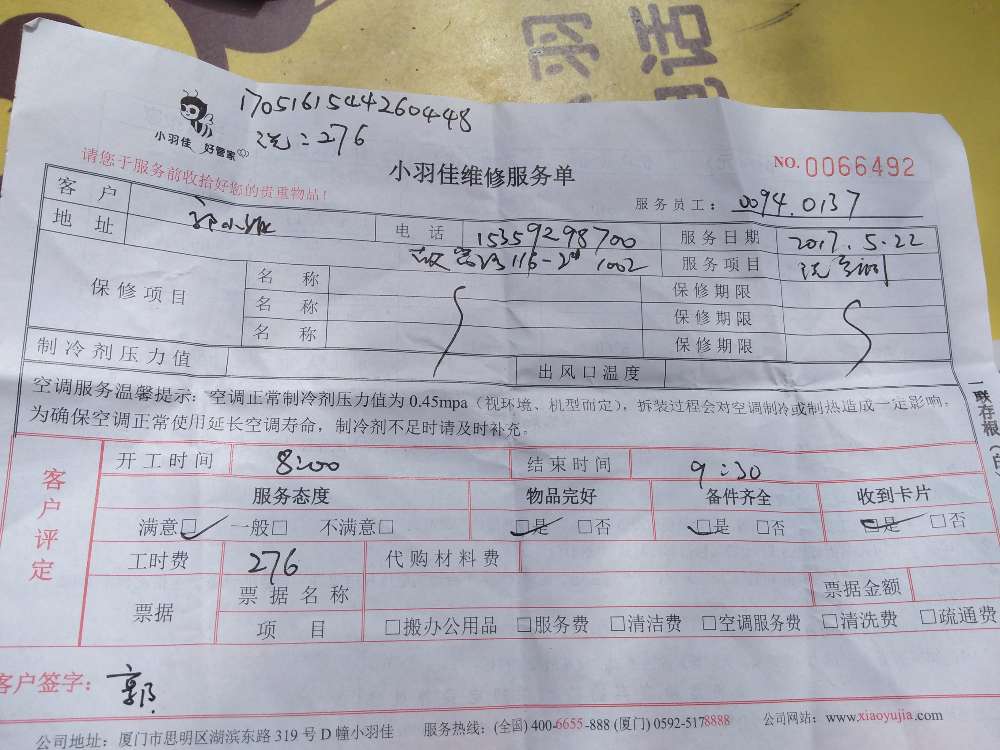 羽
话
1705161544260448
洗：276
小羽佳 好管家
请您于服务前收拾好您的贵重物品！
小羽佳维修服务单
NO. 0066492
服务员工： 0094.0137
客户
电话 15359298700 服务日期 2017.5.22
地址 116-2# 1002 服务项目 洗空调
保修项目 名称 保修期限
名称 保修期限
名称 保修期限
制冷剂压力值 出风口温度
空调服务温馨提示：空调正常制冷剂压力值为 0.45mpa（视环境、机型而定），拆装过程会对空调制冷或制热造成一定影响，
为确保空调正常使用延长空调寿命，制冷剂不足时请及时补充。
一联存根（白
客户评定
开工时间 8:00 结束时间 9:30
服务态度 物品完好 备件齐全 收到卡片
满意□✓ 一般□ 不满意□ □是 □否 □是 □否 □是 □否
工时费 276 代购材料费
票据 票据名称 票据金额
项目 □搬办公用品 □服务费 □清洁费 □空调服务费 □清洗费 □疏通费
客户签字： 郭
公司地址：厦门市思明区湖滨东路 319 号 D 幢小羽佳 服务热线：(全国) 400-6655-888 (厦门) 0592-5178888 公司网站：www.xiaoyujia.com